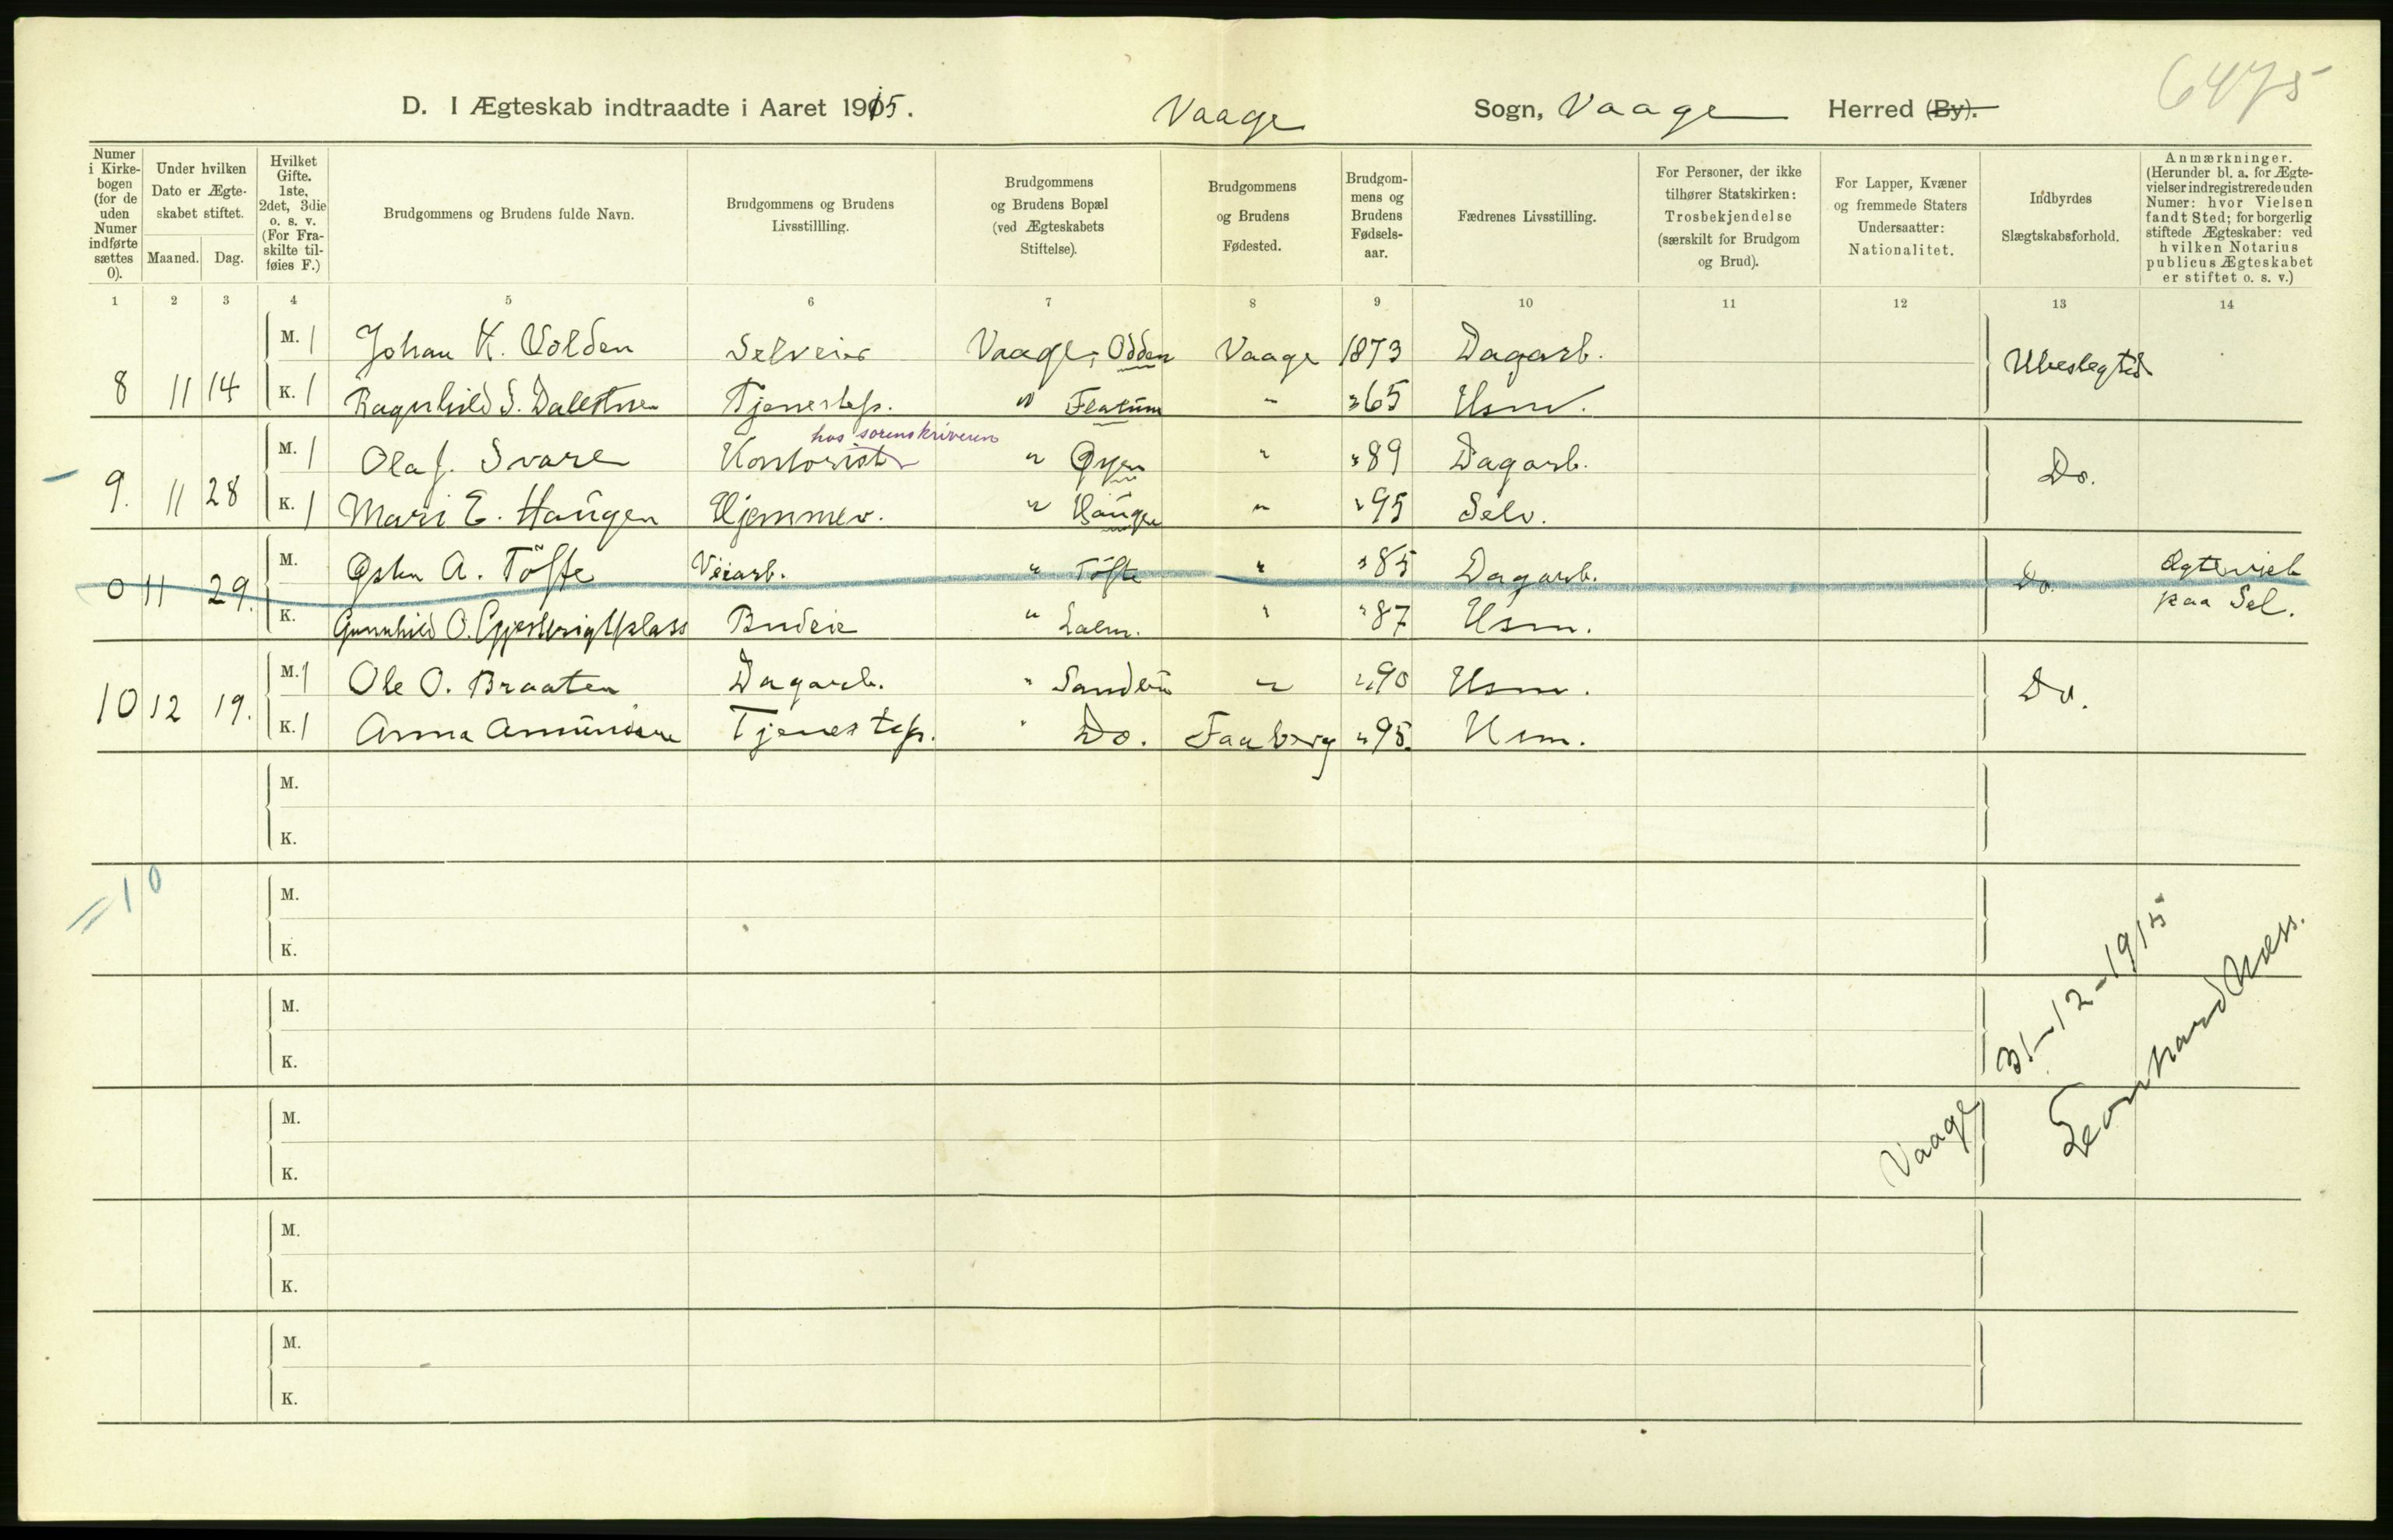 6475
D. I Ægteskab indtraadte i Aaret 1915. Vaage Sogn, Vaage Herred (By).
Numer i Kirkebogen (for de uden Numer indførte sættes 0).
Under hvilken Dato er Ægteskabet stiftet.
Maaned. Dag.
Hvilket Gifte. 1ste, 2det, 3die o. s. v. (For Fraskilte tilføies F.)
Brudgommens og Brudens fulde Navn.
Brudgommens og Brudens Livsstillling.
Brudgommens og Brudens Bopæl (ved Ægteskabets Stiftelse).
Brudgommens og Brudens Fødested.
Brudgommens og Brudens Fødselsaar.
Fædrenes Livsstilling.
For Personer, der ikke tilhører Statskirken: Trosbekjendelse (særskilt for Brudgom og Brud).
For Lapper, Kvæner og fremmede Staters Undersaatter: Nationalitet.
Indbyrdes Slægtskabsforhold.
Anmærkninger. (Herunder bl. a. for Ægtevielser indregistrerede uden Numer: hvor Vielsen fandt Sted; for borgerlig stiftede Ægteskaber: ved hvilken Notarius publicus Ægteskabet er stiftet o. s. v.)
1 2 3 4 5 6 7 8 9 10 11 12 13 14
M. 1 Johan K. Volden Selveier Vaage, Odden Vaage 1873 Dagarb. Ubeslegted
8 11 14 K. 1 Ragnhild S. Tjenestep. " " "65 Husm.
hos sorenskriveren
M. 1 Ola J. Svare Kontorist " Øyen " "89 Dagarb. Do.
9. 11 28 K. 1 Mari E. Haugen Hjemmev. " Haugen " "95 Selv.
M. A. Töfte Veiarb. " Töfte " "85 Dagarb. Do. Ægteviet
0 11 29. K. Gunnhild O. Budeie " Lalm. " "87 Husm. paa Sel.
M. 1 Ole O. Braaten Dagarb. " Sandbu " "90 Husm. Do.
10 12 19. K. 1 Anna Amundsen Tjenestep. " Do. Faaberg "95. Husm.
M.
K.
= 10
M.
K.
M.
K.
M.
K.
M.
K.
M.
K.
Vaage 31-12-1915
Leonhard Næss.